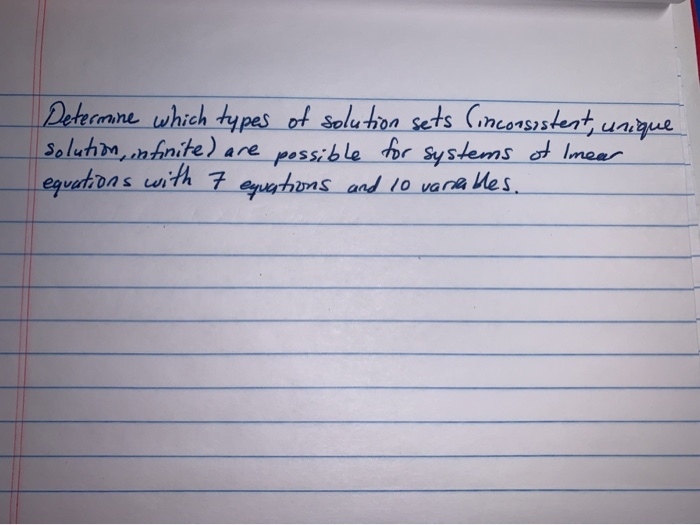 Determine which types of solution sets (inconsistent, unique
solution, infinite) are possible for systems of linear
equations with 7 equations and 10 variables.